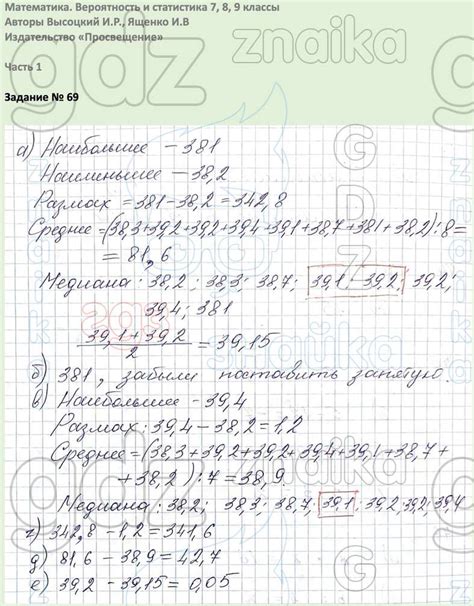 Математика. Вероятность и статистика 7, 8, 9 классы
Авторы Высоцкий И.Р., Ященко И.В
Издательство «Просвещение»
Часть 1
Задание № 69
gdz znaika
а) Наибольшее – 381
Наименьшее – 38,2
Размах = 381 – 38,2 = 342,8
Среднее = (38,3+39,2+39,2+39,4+39,1+38,7+381+38,2):8=
= 81,6
Медиана: 38,2; 38,3; 38,7; 39,1 39,2; 39,2;
39,4; 381
39,1+39,2
2
= 39,15
б) 381, забыли поставить запятую.
в) Наибольшее – 39,4
Размах: 39,4 – 38,2 = 1,2
Среднее = (38,3+39,2+39,2+39,4+39,1+38,7+
+38,2):7 = 38,9.
Медиана: 38,2; 38,3; 38,7; 39,1; 39,2; 39,2; 39,4
г) 342,8 – 1,2 = 341,6
д) 81,6 – 38,9 = 42,7
е) 39,2 – 39,15 = 0,05